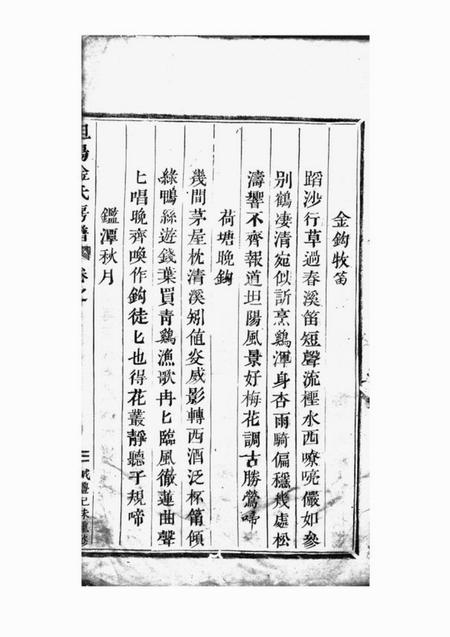 金鈎牧笛
蹈沙行草過春溪笛短聲流極水西嘹喨儼如參
别鶴凄清宛似訴烹鷄渾身杏雨騎偏穩幾處松
濤響不齊報道坦陽風景好梅花調古勝鶯啼
荷塘晚鈎
幾間茅屋枕清溪矧值炎威影轉西酒泛杯筩傾
綠鴨絲遊錢葉買青鷄漁歌冉匕臨風徹蓮曲聲
匕唱晚齊喚作鈎徒匕也得花叢靜聽子規啼
鑑潭秋月
坦陽金氏宗譜
卷之
三
咸豐己未重修